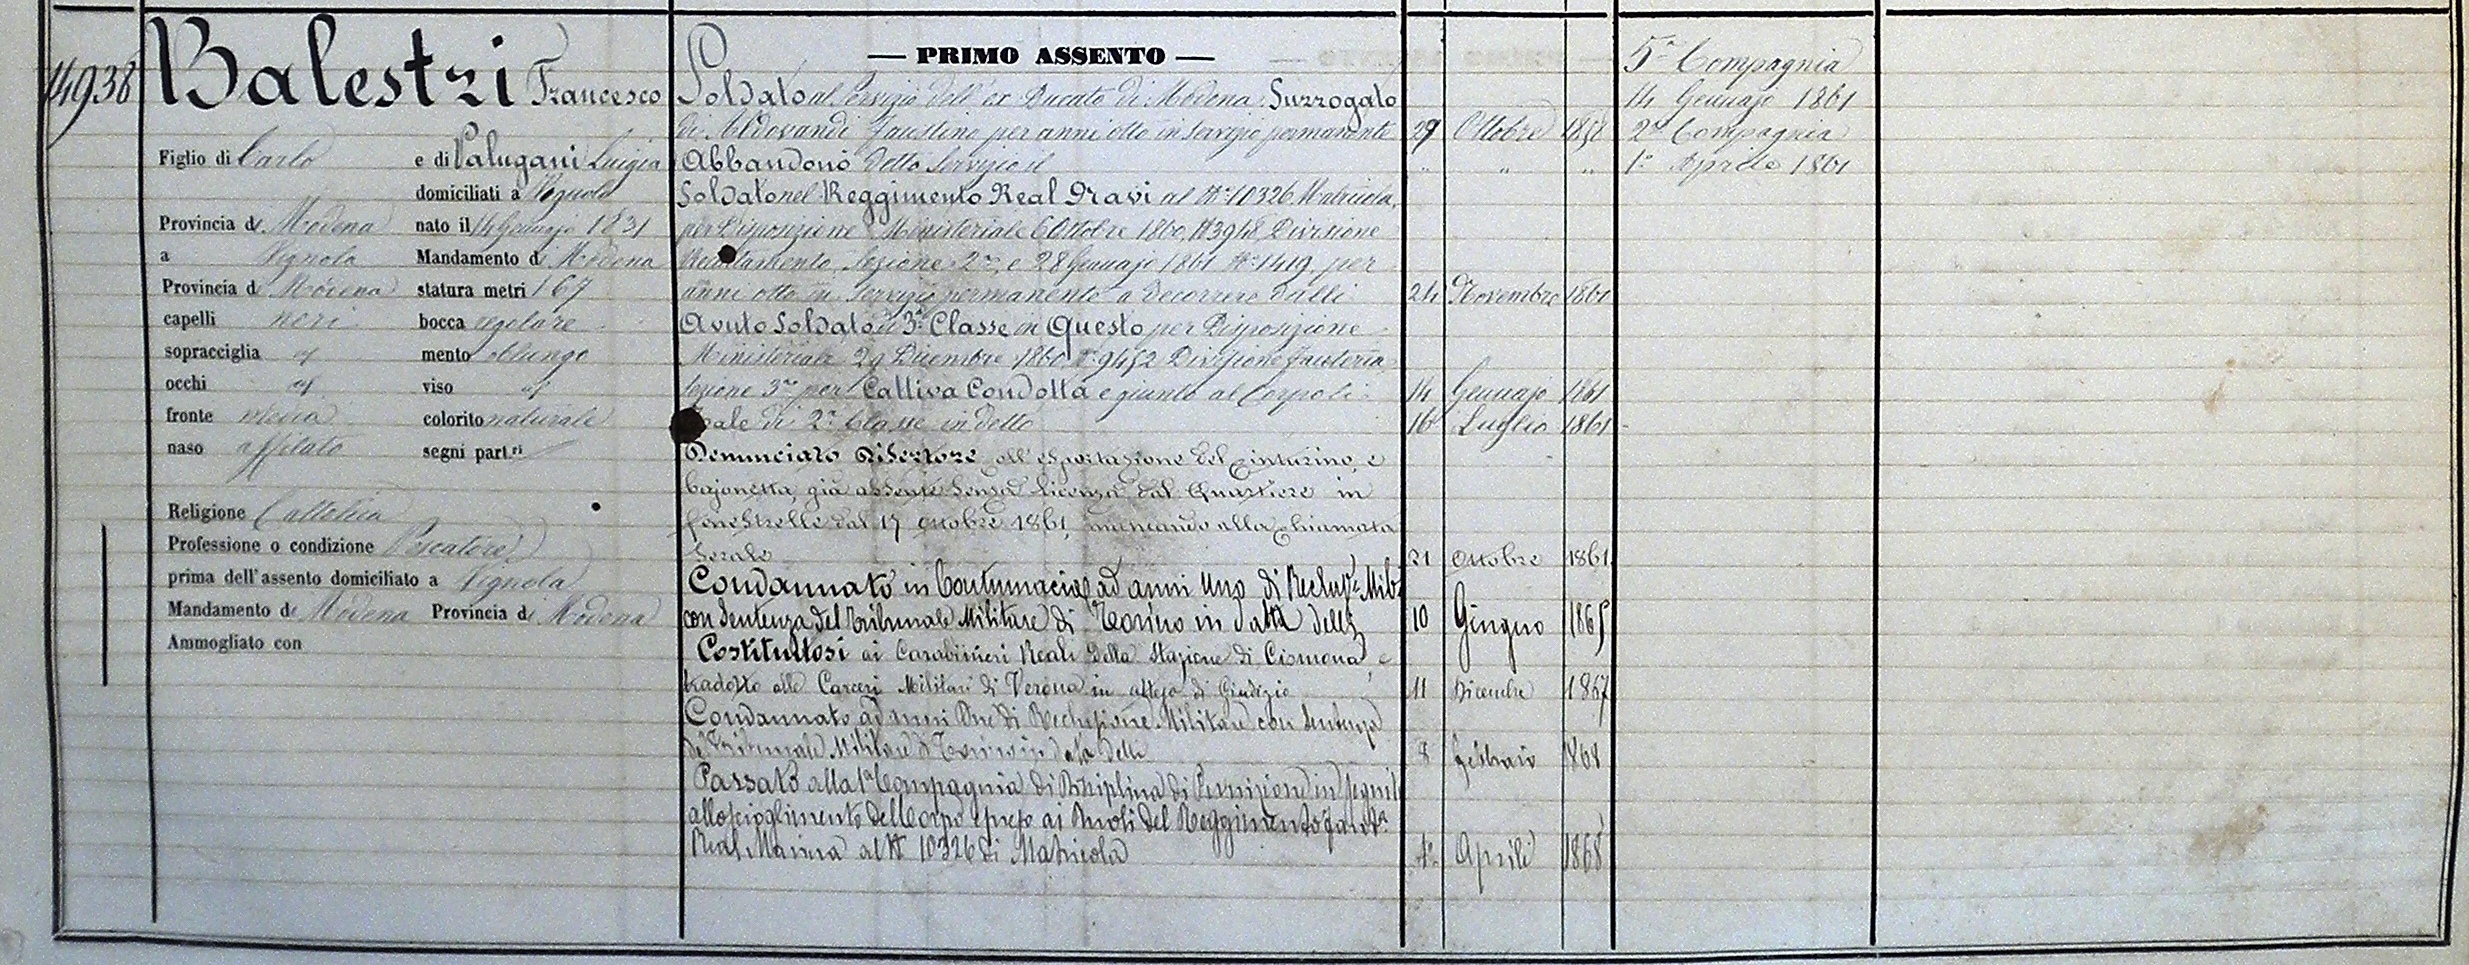 14938
Balestri Francesco
Figlio di Carlo e di Valugani Luigia
domiciliati a Vignola
Provincia di Modena nato il 14 Gennajo 1831
a Vignola Mandamento di Modena
Provincia di Modena statura metri 167
capelli neri bocca regolare
sopracciglia id mento oblungo
occhi id viso id
fronte media colorito naturale
naso affilato segni part.ri
Religione Cattolica
Professione o condizione Pescatore
prima dell'assento domiciliato a Vignola
Mandamento di Modena Provincia di Modena
Ammogliato con
— PRIMO ASSENTO —
Soldato al Servizio dell'ex Ducato di Modena Surrogato
di Aldovandi Faustino per anni otto in servizio permanente 27 Ottobre
Abbandonò detto Servizio il " " "
Soldato nel Reggimento Real Navi al N° 10326 Matricola,
per Disposizione Ministeriale 6 Ottobre 1860, N° 3948 Divisione
Reclutamento, Sezione 2ª, e 28 Gennajo 1861 N° 1419, per
anni otto in Servizio permanente a decorrere dalli 24 Novembre 1860
Avuto Soldato di 3ª Classe in Questo per Disposizione
Ministeriale 29 Dicembre 1860 N° 9452 Divisione Fanteria
Sezione 3ª per Cattiva Condotta e giunto al Corpo li 14 Gennajo 1861
Tale di 2ª Classe in detto 16 Luglio 1861
Denunciato Disertore all'esportazione del cinturino, e
bajonetta, già assente senza licenza dal Quartiere in
fenestrelle dal 17 ottobre 1861, mancando alla chiamata
serale 21 Ottobre 1861
Condannato in Contumacia ad anni Uno di Reclus.e Mil.e
con Sentenza del Tribunale Militare di Torino in data delli 10 Giugno 1865
Costituitosi ai Carabinieri Reali della Stazione di Cismona e
tradotto alle Carceri Militari di Verona in attesa di Giudizio 11 Dicembre 1867
Condannato ad anni Due di Reclusione Militare con Sentenza
del Tribunale Militare di Torino in data delli 8 Febbraio 1868
Passato alla 1ª Compagnia di Disciplina di Punizione in seguito
allo scioglimento del Corpo e preso ai Ruoli del Reggimento Fant.ª
Real Marina al N° 10326 di Matricola 1° Aprile 1868
5ª Compagnia
14 Gennajo 1861
2ª Compagnia
1° Aprile 1861